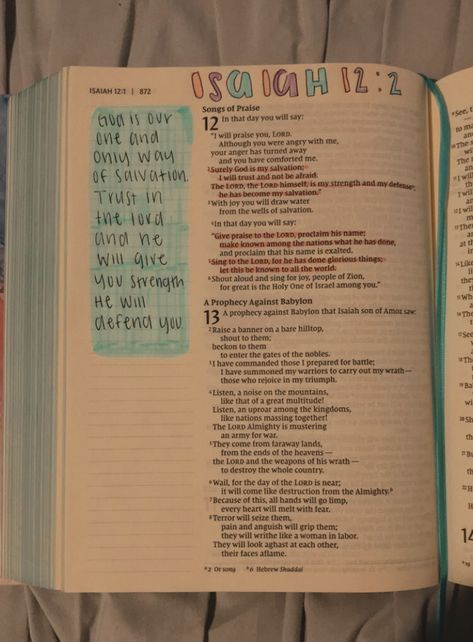 ISAIAH 12:1 | 872
ISAIAH 12:2
God is our
one and
only way
of salvation.
Trust in
the lord
and he
will give
you strength
He will
defend you.
Songs of Praise
12 In that day you will say:
"I will praise you, LORD.
Although you were angry with me,
your anger has turned away
and you have comforted me.
2 Surely God is my salvation;
I will trust and not be afraid.
The LORD, the LORD himself, is my strength and my defense;
he has become my salvation."
3 With joy you will draw water
from the wells of salvation.
4 In that day you will say:
"Give praise to the LORD, proclaim his name;
make known among the nations what he has done,
and proclaim that his name is exalted.
5 Sing to the LORD, for he has done glorious things;
let this be known to all the world.
6 Shout aloud and sing for joy, people of Zion,
for great is the Holy One of Israel among you."
A Prophecy Against Babylon
13 A prophecy against Babylon that Isaiah son of Amoz saw:
2 Raise a banner on a bare hilltop,
shout to them;
beckon to them
to enter the gates of the nobles.
3 I have commanded those I prepared for battle;
I have summoned my warriors to carry out my wrath—
those who rejoice in my triumph.
4 Listen, a noise on the mountains,
like that of a great multitude!
Listen, an uproar among the kingdoms,
like nations massing together!
The LORD Almighty is mustering
an army for war.
5 They come from faraway lands,
from the ends of the heavens—
the LORD and the weapons of his wrath—
to destroy the whole country.
6 Wail, for the day of the LORD is near;
it will come like destruction from the Almighty.b
7 Because of this, all hands will go limp,
every heart will melt with fear.
8 Terror will seize them,
pain and anguish will grip them;
they will writhe like a woman in labor.
They will look aghast at each other,
their faces aflame.
a 2 Or song b 6 Hebrew Shaddai
14